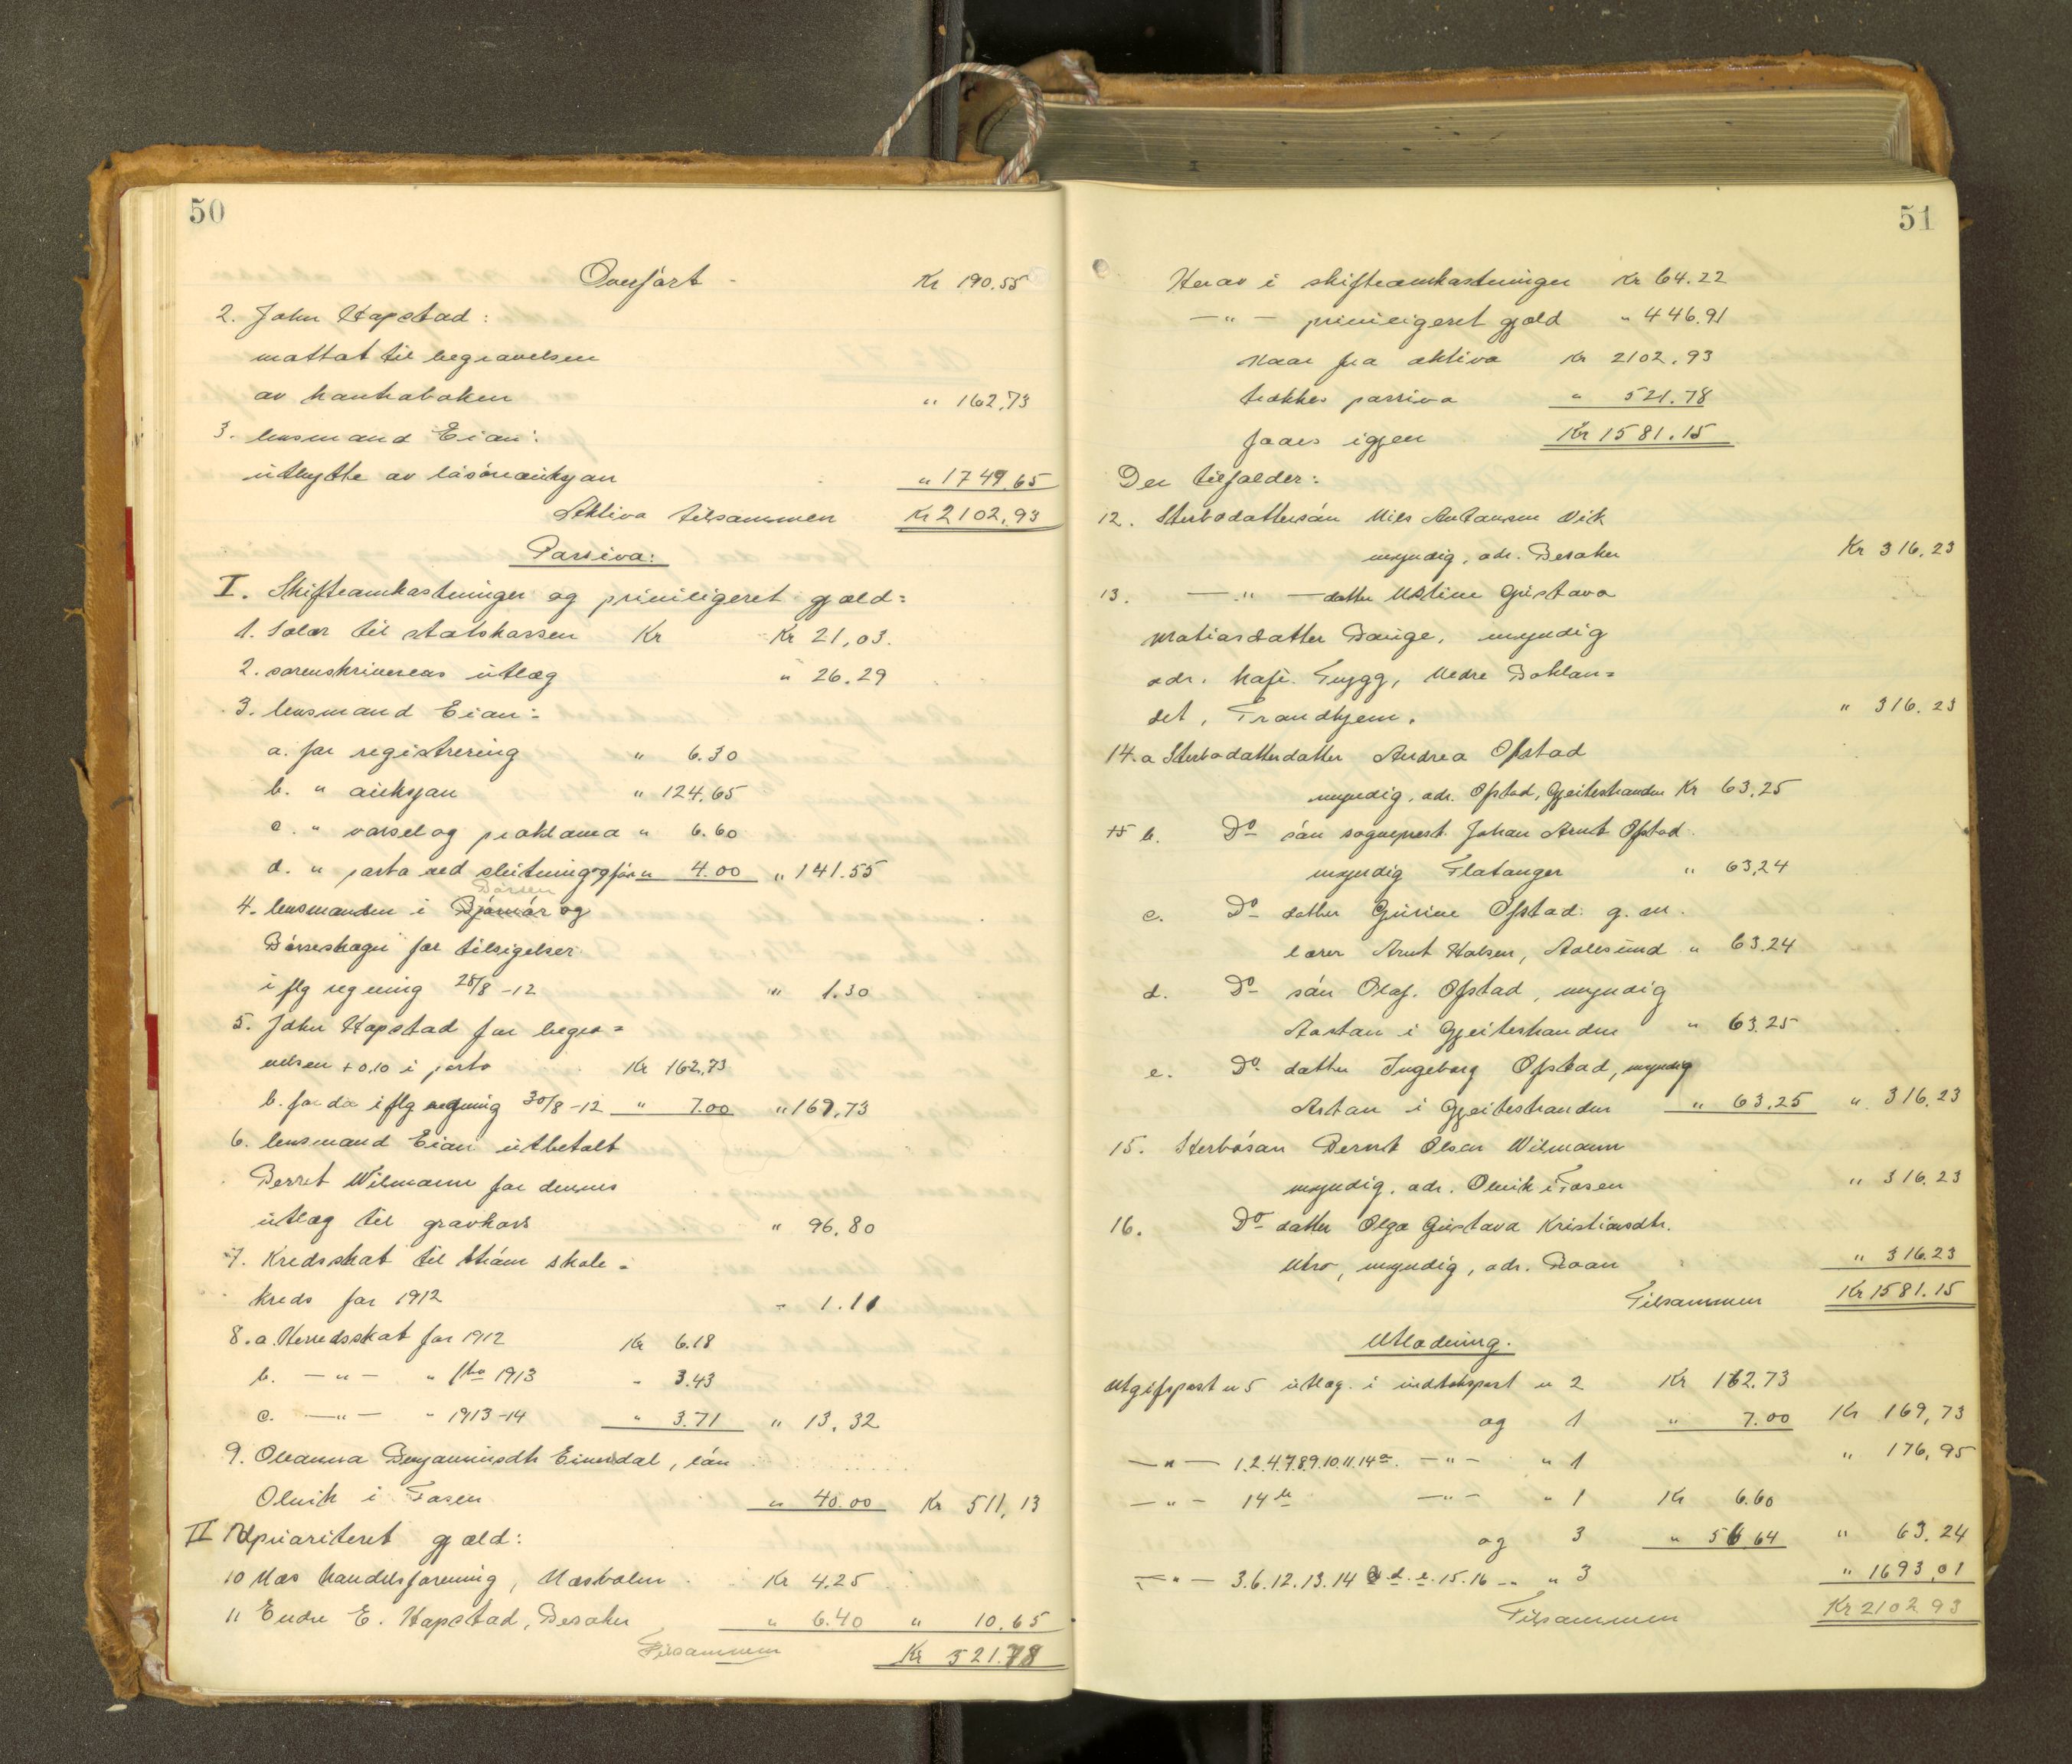 50
Overført - Kr 190.55
2. John Hopstad:
mottat til begravelsen
av bankaboken " 162,73
3. lensmand Eian:
utbytte av løsøreauksjon " 1749.65
Aktiva tilsammen Kr 2102,93
Passiva:
I. Skifteomkostninger og priviligeret gjæld:
1. Salær til statskassen Kr Kr 21,03.
2. sorenskriverens utlæg " 26.29
3. lensmand Eian:
a. for registrering " 6.30
b. " auksjon " 124.65
c. " varsel og proklama " 6.60
d. " porto ved slutning " 4.00 " 141.55
Børsen
4. lensmanden i og
Børseskogn for tilsigelser
i flg regning 28/8-12 " 1.30
5. John Hopstad for begra=
velsen + 0,10 i porto Kr 162,73
b. for do iflg regning 30/8-12 " 7.00 " 169,73
6. lensmand Eian utbetalt
Berret Wilmann for dennes
utlæg til gravkors " 96.80
7. Kredsskat til skole=
kreds for 1912 " 1.11
8. a. Herredsskat for 1912 Kr 6.18
b. —"— " 1913 " 3.43
c. —"— " 1913-14 " 3.71 " 13,32
9. Oleanna Benjaminsdtr , løn
Olvik i Fosen " 40.00 Kr 511,13
II Uprioriteret gjæld:
10 Næs handelsforening, Næsholm Kr 4.25
11 Endre E. Hopstad, Besaker " 6.40 " 10.65
Tilsammen Kr 521.78
51
Herav i skifteomkostninger Kr 64.22
—"— priviligeret gjæld " 446.91
Naar fra aktiva Kr 2102.93
trækkes passiva " 521.78
faaes igjen Kr 1581.15
Der tilfalder:
12. Sterbodattersøn Nils Antonsen Vik
myndig, adr. Besaker Kr 316,23
13. —"— datter Ustine Gustava
Matiasdatter Bauge, myndig
adr. kafe. Trygg, Nedre Baklan=
det, Trondhjem. " 316.23
14. a Sterbodatterdatter Andrea Ofstad
myndig, adr. Ofstad, Gjeitestranden Kr 63,25
15 b. Do søn sogneprest Johan Arnt Ofstad
myndig Flatanger " 63,24
c. Do datter Gurine Ofstad g. m.
lærer Arnt Halsen, Aalesund " 63.24
d. Do søn Olaf Ofstad, myndig
Aastan i Gjeitestranden " 63.25
e. Do datter Ingeborg Ofstad, myndig
Astan i Gjeitestranden " 63,25 " 316,23
15. Sterbosøn Bernt Olsen Wilmann
myndig, adr. Olvik i Fosen " 316.23
16. Do datter Olga Gustava Kristiansdtr.
Utro, myndig, adr. Roan " 316.23
Tilsammen Kr 1581.15
Utlodning.
Utgifspost n 5 utlæg. i indtægtspost n 2 Kr 162.73
og 1 " 7.00 Kr 169,73
—"— 1.2.4.7.8.9.10.11.14a. —"— " 1 " 176,95
—"— 14 b —"— " 1 Kr 6.60
og 3 " 56 64 " 63.24
—"— 3.6.12.13.14 c. d. e. 15.16 —"— " 3 " 1693,01
Tilsammen Kr 2102 93